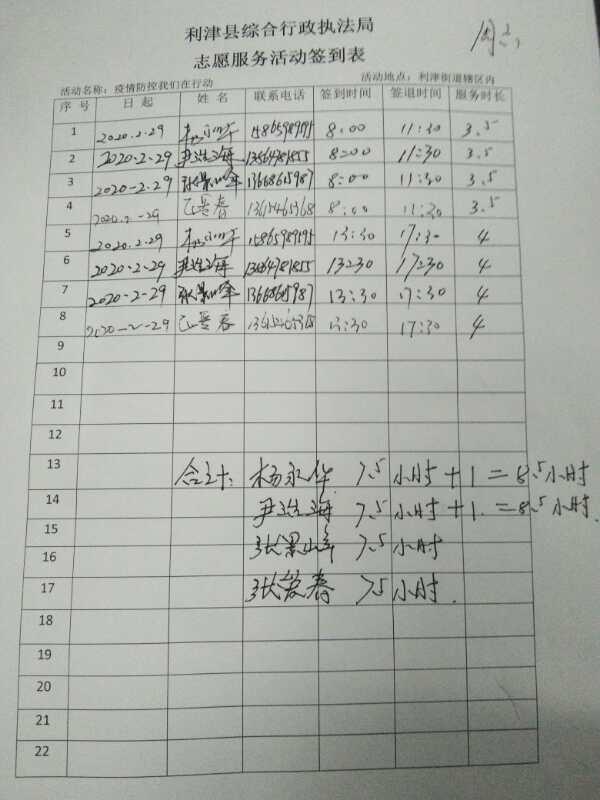 利津县综合行政执法局
志愿服务活动签到表
活动名称：疫情防控我们在行动 活动地点：利津街道辖区内
序号 日起 姓名 联系电话 签到时间 签退时间 服务时长
1 2020.2.29 杨永华 8:00 11:30 3.5
2 2020-2-29 尹浩海 8:00 11:30 3.5
3 2020-2-29 张景峰 8:00 11:30 3.5
4 2020.2-29 8:00 11:30 3.5
5 2020.2.29 杨永华 13:30 17:30 4
6 2020-2-29 尹浩海 13:30 17:30 4
7 2020-2-29 张景峰 13:30 17:30 4
8 2020-2-29 13:30 17:30 4
9
10
11
12
13 合计: 杨永华 7.5小时+1=8.5小时
14 尹浩海 7.5小时+1.=8.5小时.
15
16 张景峰 7.5小时
17 7.5小时.
18
19
20
21
22